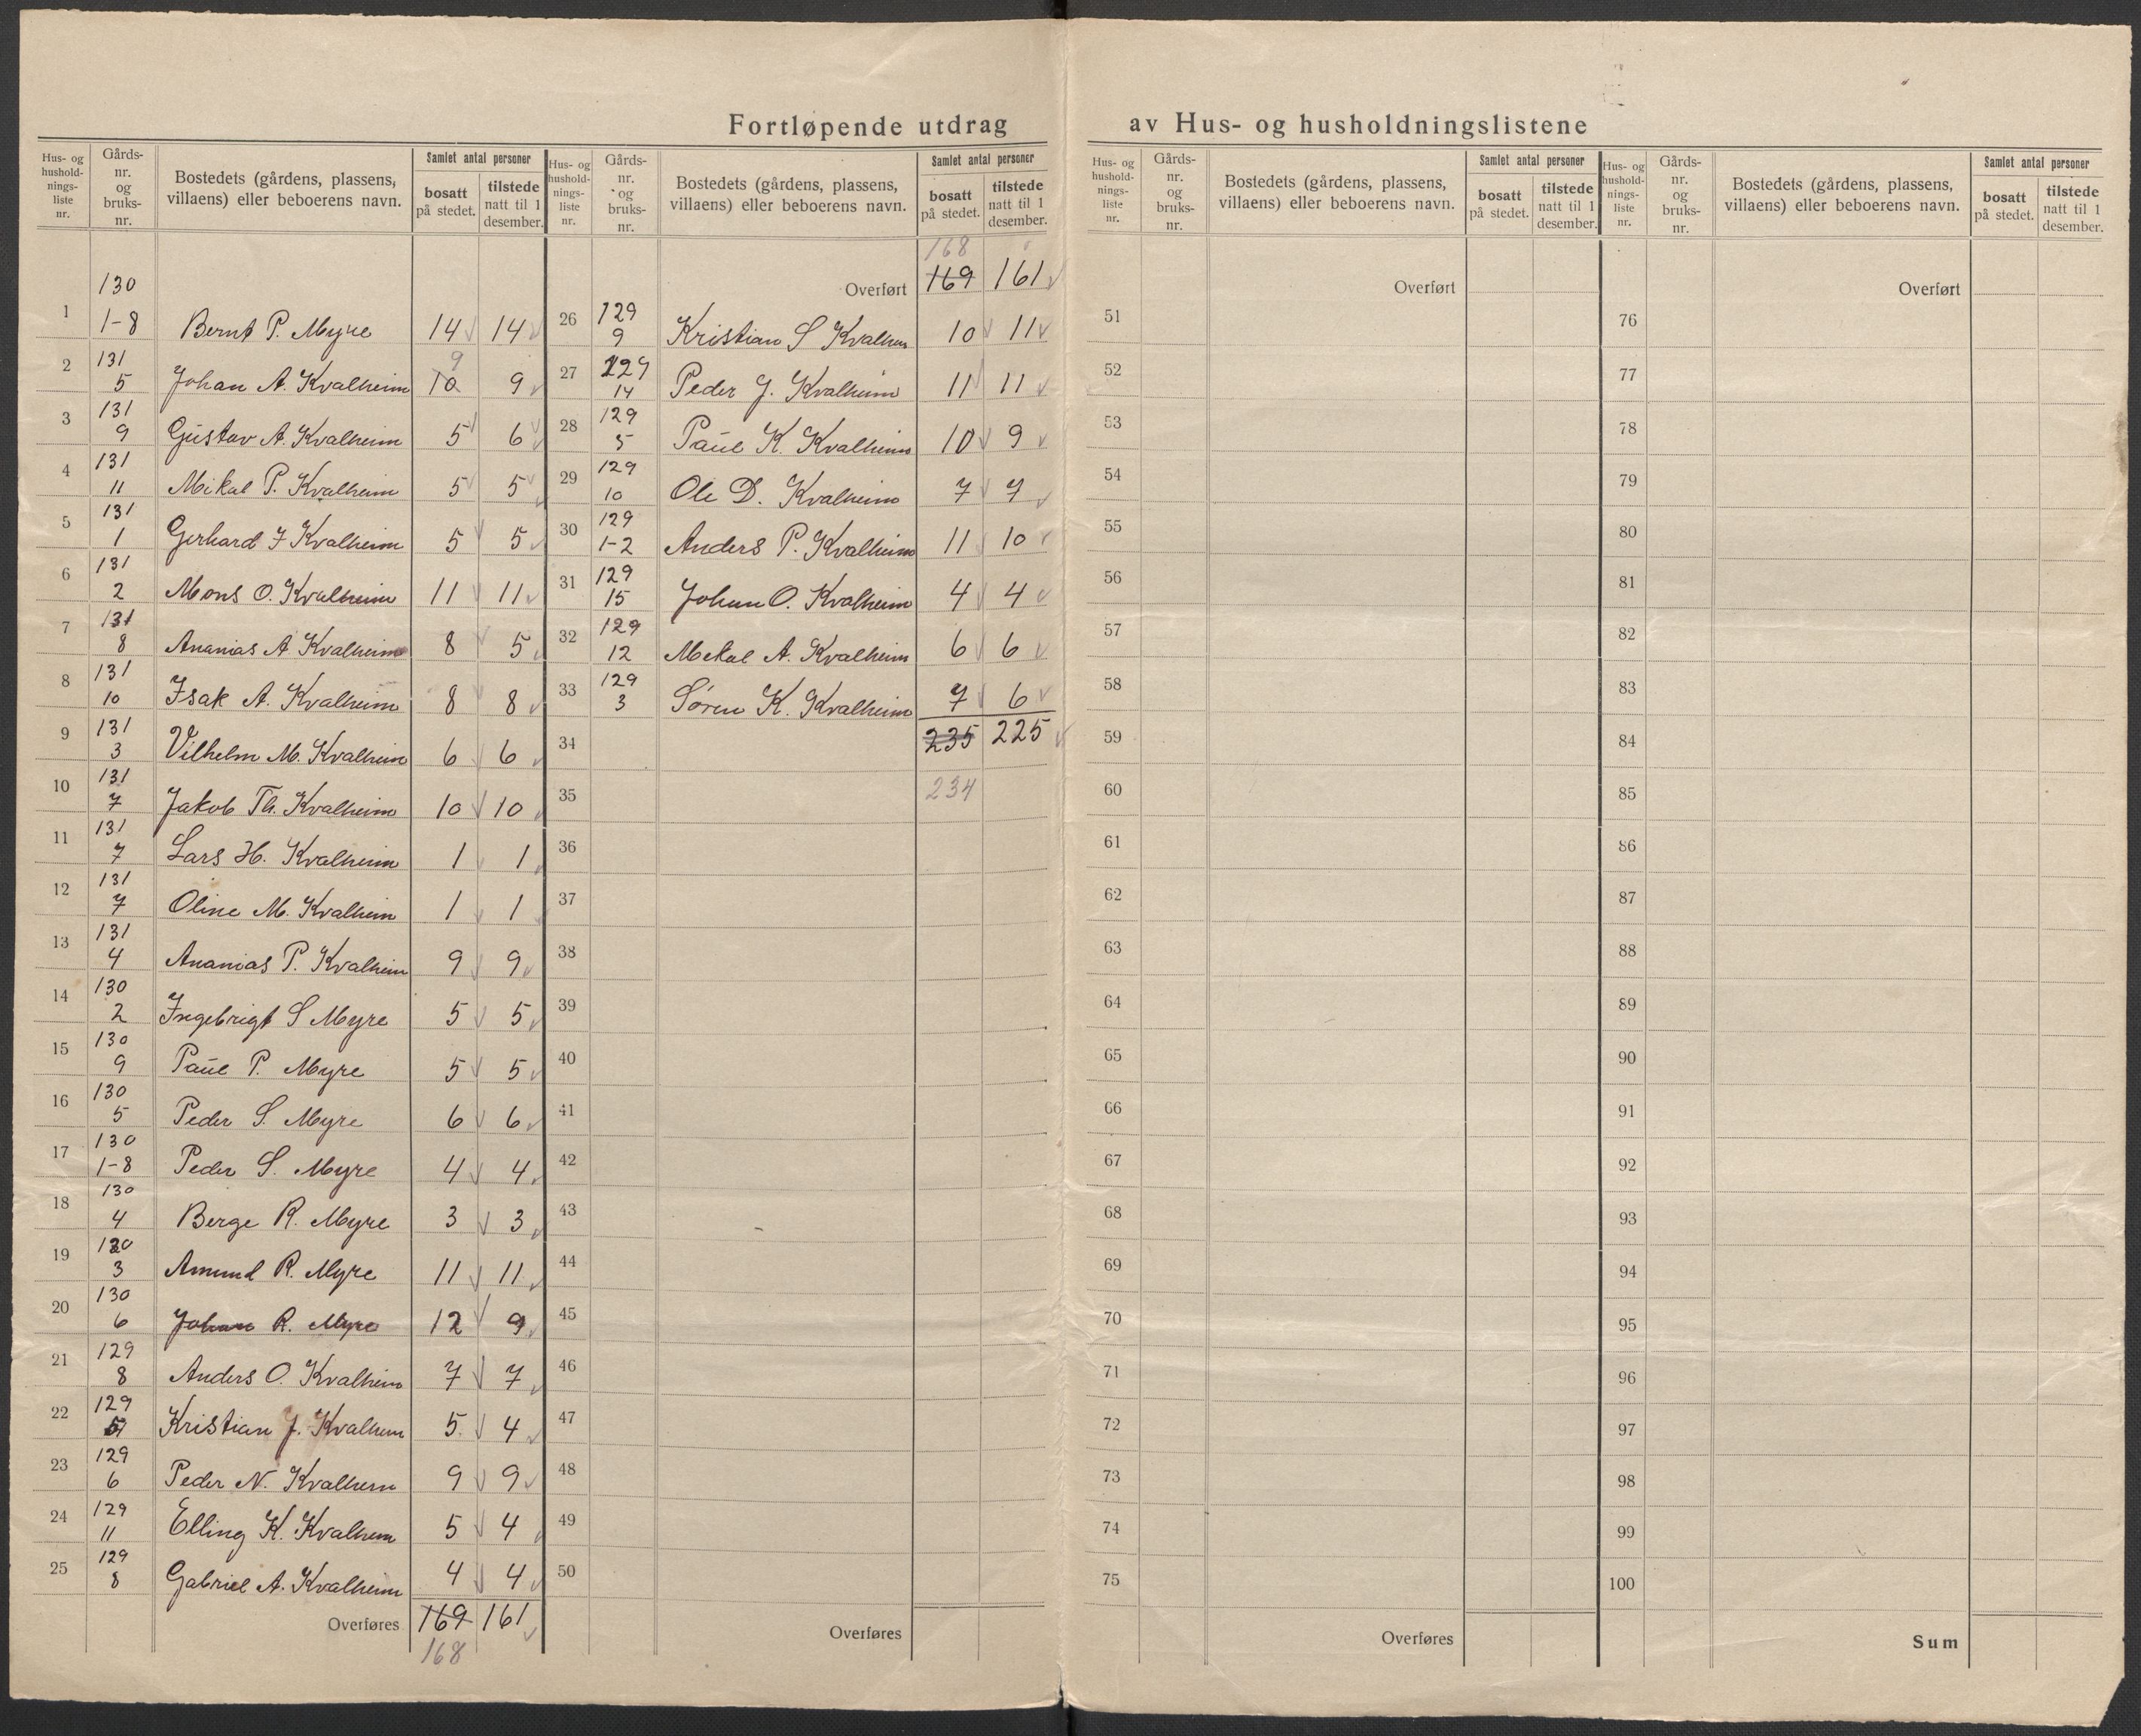 Fortløpende utdrag av Hus- og husholdningslistene
Hus- og husholdnings- liste nr. | Gårds- nr. og bruks- nr. | Bostedets (gårdens, plassens, villaens) eller beboerens navn. | Samlet antal personer | bosatt på stedet. | tilstede natt til 1 desember.
1 | 130 1-8 | Bernt P. Myre | 14 | 14
2 | 131 5 | Johan A. Kvalheim | 10 9 | 9
3 | 131 9 | Gustav A. Kvalheim | 5 | 6
4 | 131 11 | Mikal P. Kvalheim | 5 | 5
5 | 131 1 | Gerhard J Kvalheim | 5 | 5
6 | 131 2 | Mons O. Kvalheim | 11 | 11
7 | 131 8 | Ananias A Kvalheim | 8 | 5
8 | 131 10 | Isak A. Kvalheim | 8 | 8
9 | 131 3 | Vilhelm M. Kvalheim | 6 | 6
10 | 131 7 | Jakob Th. Kvalheim | 10 | 10
11 | 131 7 | Lars H. Kvalheim | 1 | 1
12 | 131 7 | Oline M. Kvalheim | 1 | 1
13 | 131 4 | Ananias P. Kvalheim | 9 | 9
14 | 130 2 | Ingebrigt S Myre | 5 | 5
15 | 130 9 | Paul P. Myre | 5 | 5
16 | 130 5 | Peder S. Myre | 6 | 6
17 | 130 1-8 | Peder S. Myre | 4 | 4
18 | 130 4 | Berge R. Myre | 3 | 3
19 | 130 3 | Amund R. Myre | 11 | 11
20 | 130 6 | Johan R. Myre | 12 | 9
21 | 129 8 | Anders O. Kvalheim | 7 | 7
22 | 129 | Kristian J. Kvalheim | 5 | 4
23 | 129 6 | Peder N. Kvalheim | 9 | 9
24 | 129 11 | Elling K. Kvalheim | 5 | 4
25 | 129 8 | Gabriel A. Kvalheim | 4 | 4
Overføres 169 161
168
Hus- og husholdnings- liste nr. | Gårds- nr. og bruks- nr. | Bostedets (gårdens, plassens, villaens) eller beboerens navn. | Samlet antal personer | bosatt på stedet. | tilstede natt til 1 desember.
168
Overført 169 161
26 | 129 9 | Kristian S Kvalheim | 10 | 11
27 | 129 14 | Peder J. Kvalheim | 11 | 11
28 | 129 5 | Paul K. Kvalheim | 10 | 9
29 | 129 10 | Ole D. Kvalheim | 7 | 7
30 | 129 1-2 | Anders P. Kvalheim | 11 | 10
31 | 129 15 | Johan O. Kvalheim | 4 | 4
32 | 129 12 | Mekal A. Kvalheim | 6 | 6
33 | 129 3 | Søren K. Kvalheim | 7 | 6
34 | 235 | 225
35 | 234
36
37
38
39
40
41
42
43
44
45
46
47
48
49
50
Overføres
Hus- og husholdnings- liste nr. | Gårds- nr. og bruks- nr. | Bostedets (gårdens, plassens, villaens) eller beboerens navn. | Samlet antal personer | bosatt på stedet. | tilstede natt til 1 desember.
Overført
51
52
53
54
55
56
57
58
59
60
61
62
63
64
65
66
67
68
69
70
71
72
73
74
75
Overføres
Hus- og husholdnings- liste nr. | Gårds- nr. og bruks- nr. | Bostedets (gårdens, plassens, villaens) eller beboerens navn. | Samlet antal personer | bosatt på stedet. | tilstede natt til 1 desember.
Overført
76
77
78
79
80
81
82
83
84
85
86
87
88
89
90
91
92
93
94
95
96
97
98
99
100
Sum